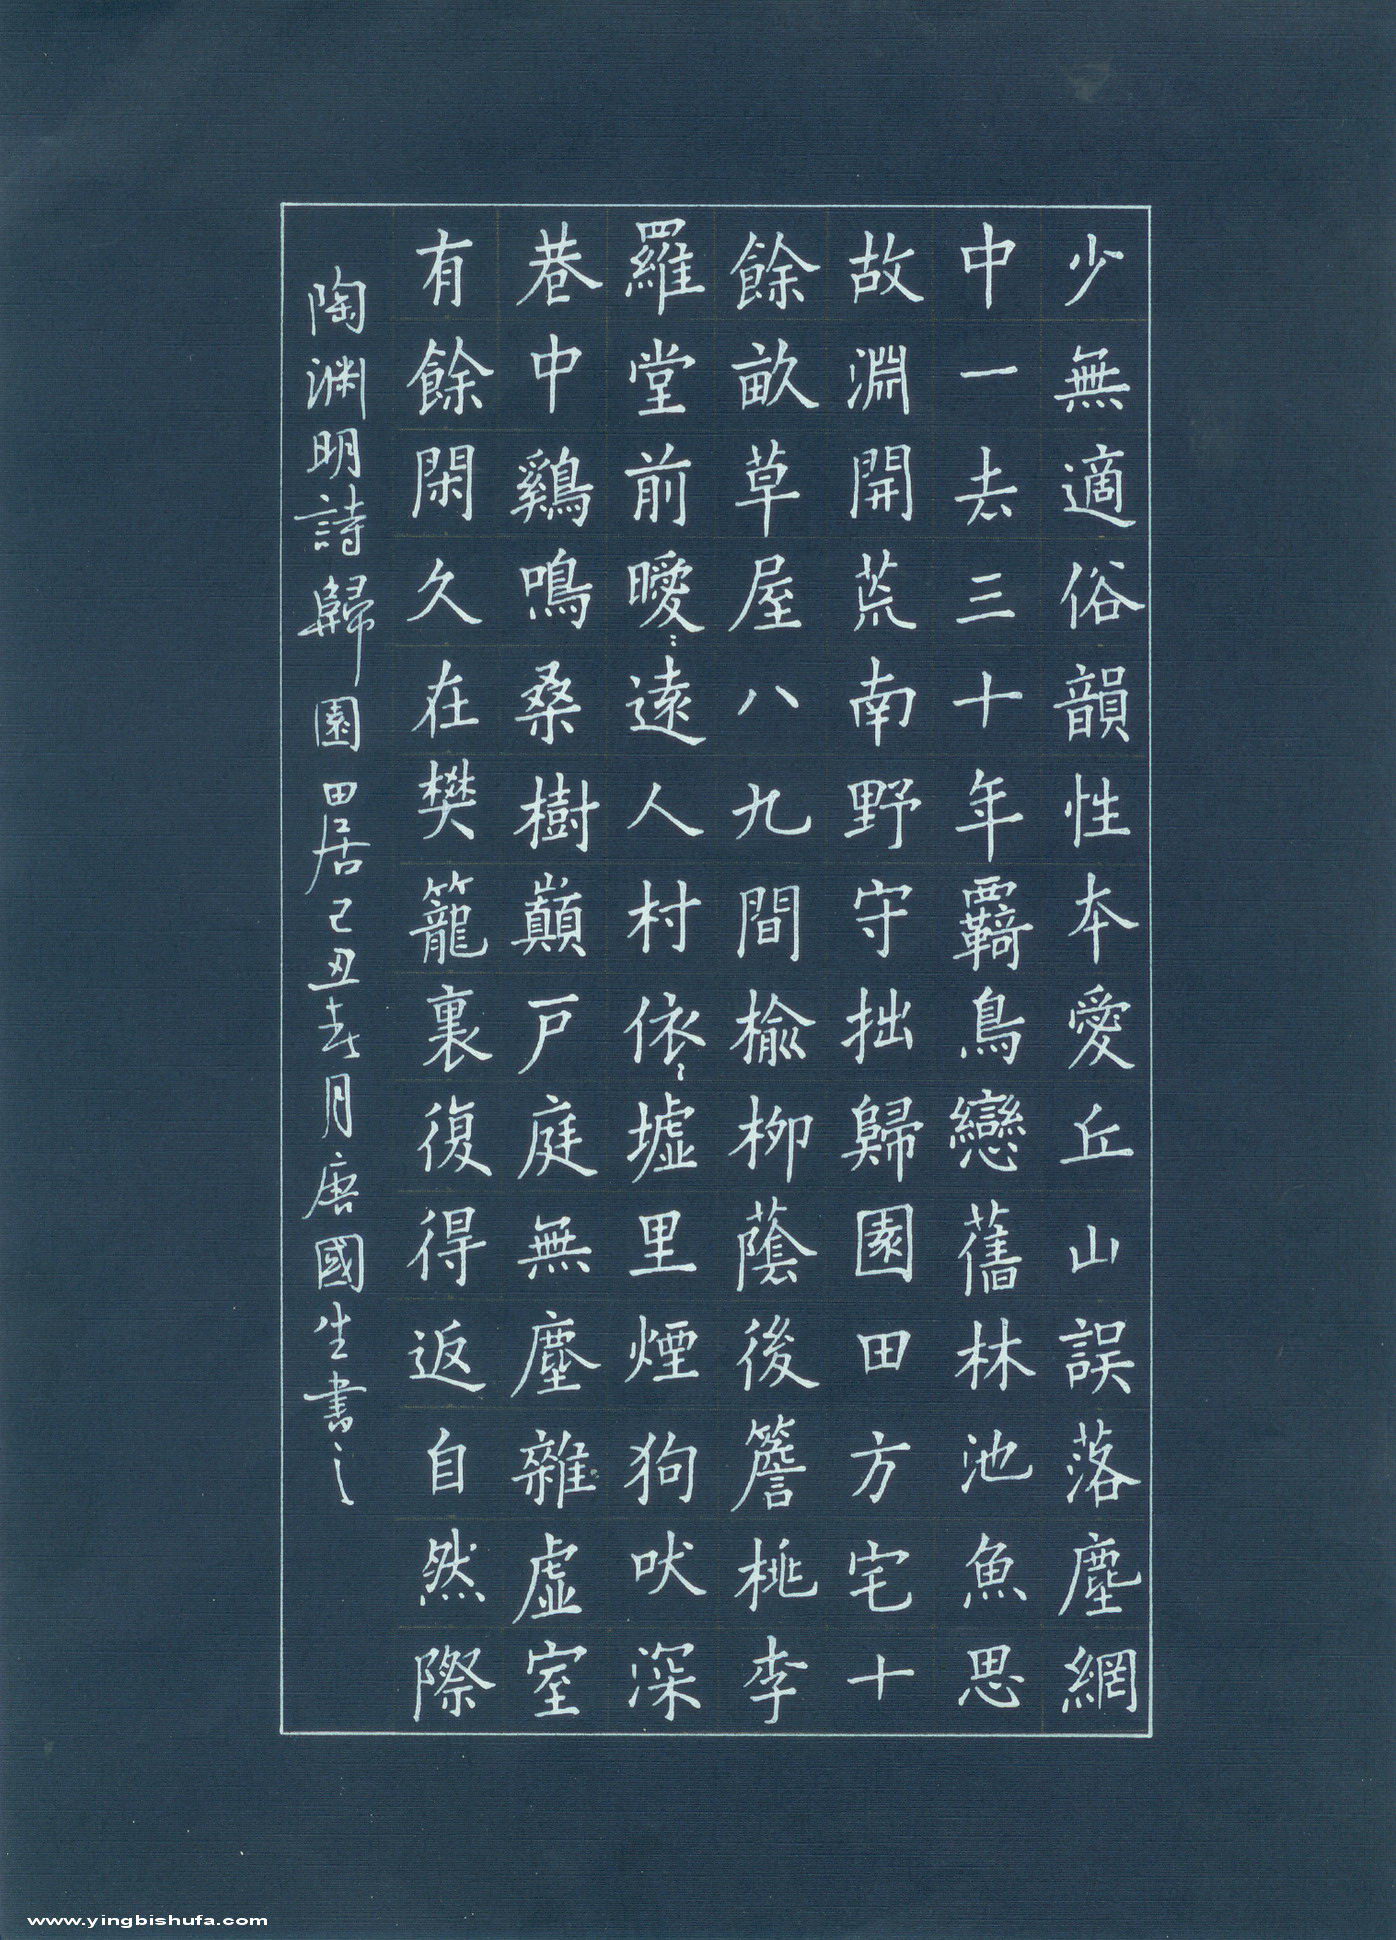 少無適俗韻性本愛丘山誤落塵網
中一去三十年覉鳥戀舊林池魚思
故淵開荒南野守拙歸園田方宅十
餘畝草屋八九間榆柳蔭後簷桃李
羅堂前曖〻遠人村依〻墟里煙狗吠深
巷中鷄鳴桑樹巔戶庭無塵雜虛室
有餘閑久在樊籠裏復得返自然際
陶渊明詩歸園田居己丑春月唐國生書之
www.yingbishufa.com